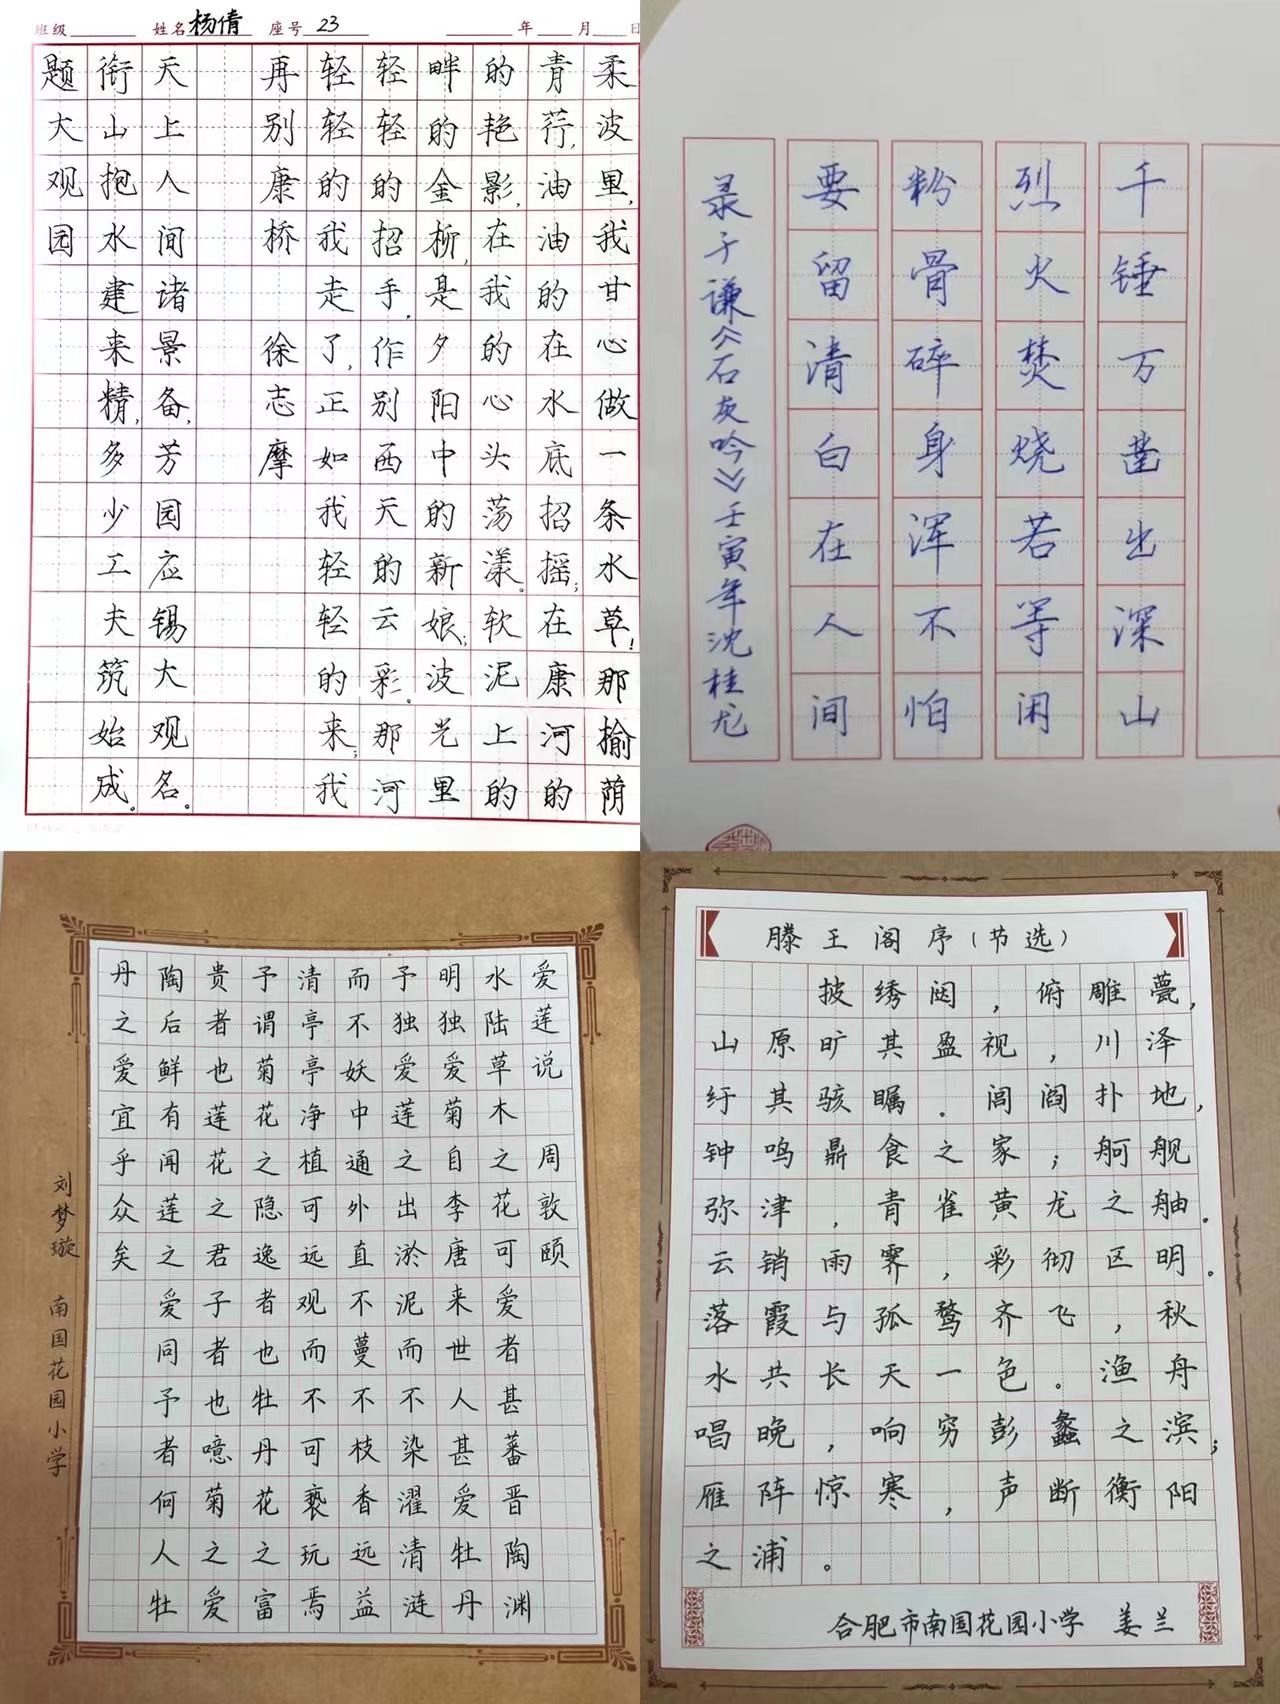 班级 姓名 杨倩 座号 23 年 月 日
题大观园
衔山抱水建来精,多少工夫筑始成。
天上人间诸景备,芳园应锡大观名。
再别康桥 徐志摩
轻轻的我走了,正如我轻轻的来;我
轻轻的招手,作别西天的云彩。那河
畔的金柳,是夕阳中的新娘;波光里
的艳影,在我的心头荡漾。软泥上的
青荇,油油的在水底招摇;在康河的
柔波里,我甘心做一条水草!那榆荫
千锤万凿出深山
烈火焚烧若等闲
粉骨碎身浑不怕
要留清白在人间
录于谦《石灰吟》壬寅年沈桂龙
爱莲说 周敦颐
水陆草木之花可爱者甚蕃晋陶渊
明独爱菊自李唐来世人甚爱牡丹
予独爱莲之出淤泥而不染濯清涟
而不妖中通外直不蔓不枝香远益
清亭亭净植可远观而不可亵玩焉
予谓菊花之隐逸者也牡丹花之富
贵者也莲花之君子者也噫菊之爱
陶后鲜有闻莲之爱同予者何人牡
丹之爱宜乎众矣
刘梦璇 南国花园小学
滕王阁序(节选)
披绣闼,俯雕甍,
山原旷其盈视,川泽
纡其骇瞩.闾阎扑地,
钟鸣鼎食之家;舸舰
弥津,青雀黄龙之舳。
云销雨霁,彩彻区明。
落霞与孤鹜齐飞,秋
水共长天一色。渔舟
唱晚,响穷彭蠡之滨;
雁阵惊寒,声断衡阳
之浦。
合肥市南国花园小学 姜兰